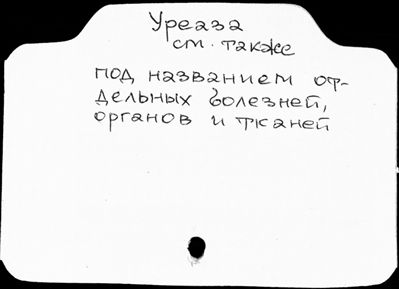 Уреаза
см. также
под названием от-
дельных болезней,
органов и тканей